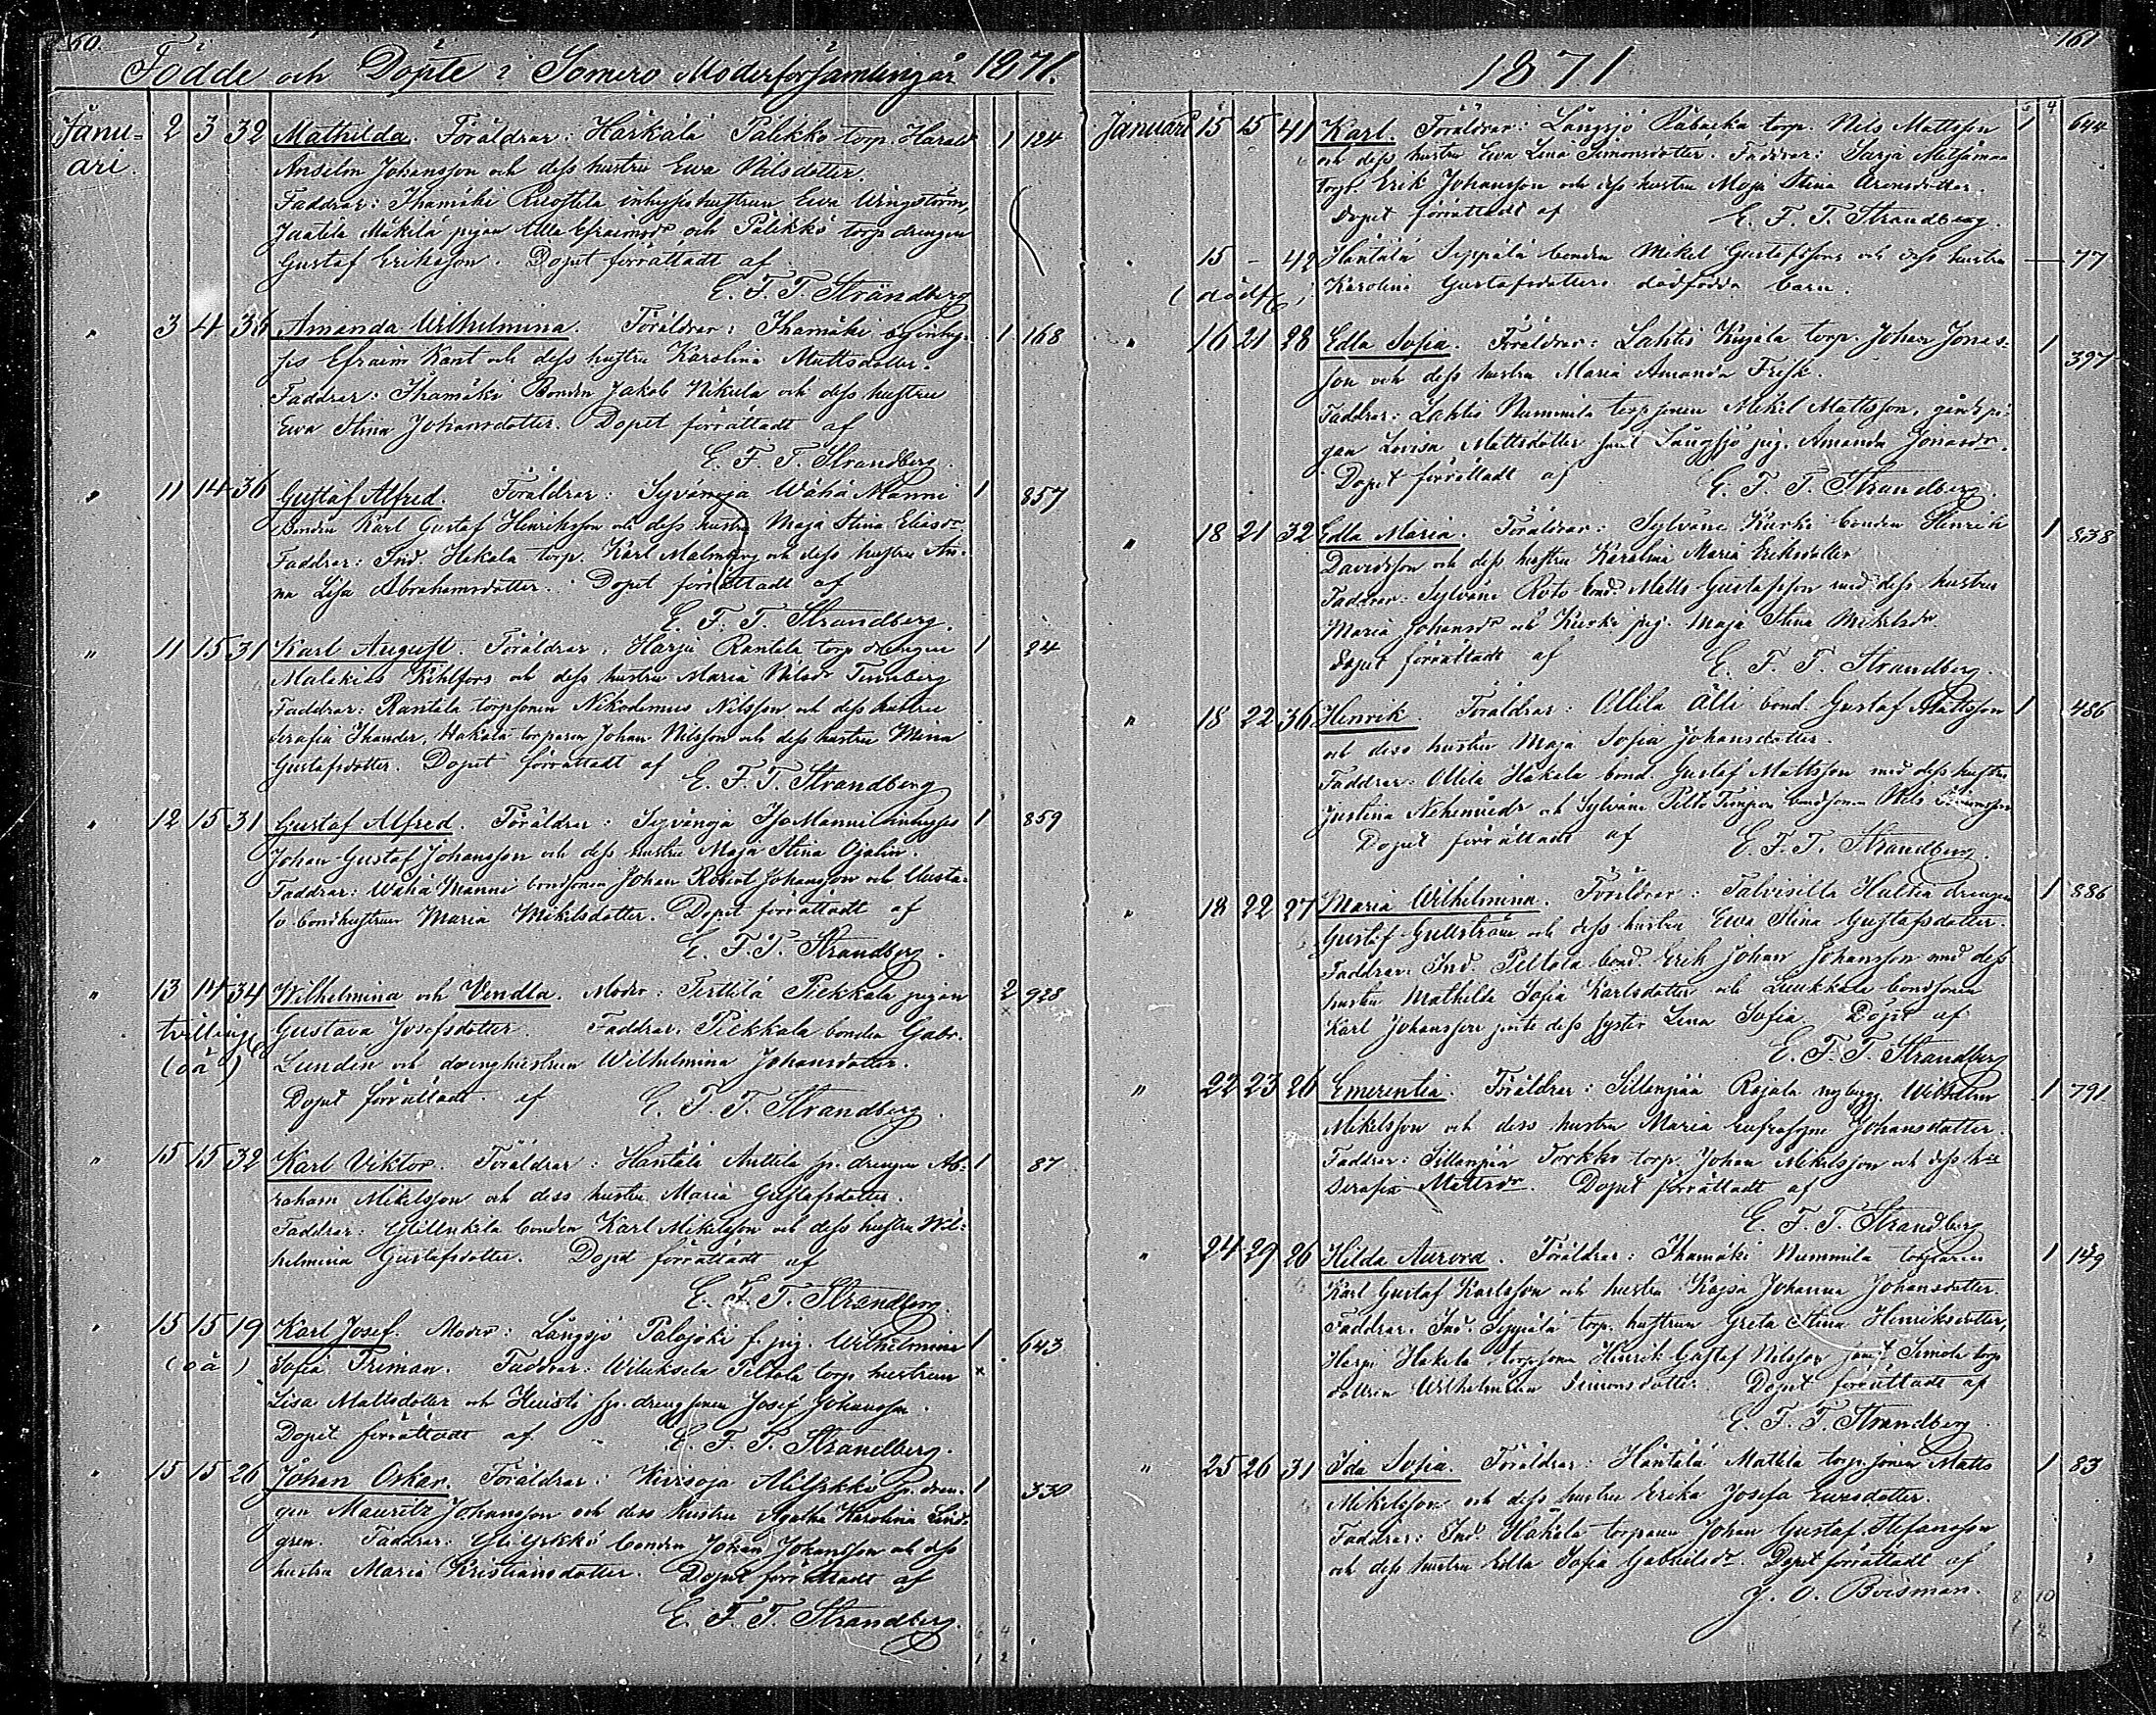 160.
Födde och Döpte i Somero Moderförsamling år 1871.
Janu=
ari.
2 3 32 Mathilda. Föräldrar: Härkälä Pälikkö torp. Harald 1 124
Anselm Johansson och dess hustru Ewa Nilsdotter.
Faddrar: Ihamäki Ruostila inhyses hustrun Ewa
Jaatila Mäkilä pigan Ulla Efraimsdr och Pälikkö torp drengen
Gustaf Eriksson. Dopet förrättadt af
E. F. T. Strandberg
" 3 4 36 Amanda Wilhelmina. Föräldrar: Ihamäki 1 168
ses Efraim Kant och dess hustru Karolina Mattsdotter.
Faddrar: Ihamäki Bonden Jakob Nikula och dess hustru
Ewa Stina Johansdotter. Dopet förrättadt af
E. F. T. Strandberg.
" 11 14 36 Gustaf Alfred. Föräldrar: Syvänoja Wähä Manni 1 857
Bonden Karl Gustaf Henriksson och dess hustru Maja Stina Eliasdr
Faddrar: Ind. Hakala torp. Karl Malmberg och dess hustru An-
na Lisa Abrahamsdotter. Dopet förrättadt af
E. F. T. Strandberg.
" 11 15 31 Karl August. Föräldrar: Harju Rantala torp drengen 1 24
Malakias Kihlfors och dess hustru Maria Nilsdr
Faddrar: Rantala torpsonen Nikodemus Nilsson och dess hustru
Serafia Ikander, Hakala torparen Johan Nilsson och dess hustru Mina
Gustafsdotter. Dopet förrättadt af E. F. T. Strandberg
" 12 15 31 Gustaf Alfred. Föräldrar: Syvänoja Iso Manni inhyses 1 859
Johan Gustaf Johansson och dess hustru Maja Stina Ojalin.
Faddrar: Wähä Manni bondsonen Johan Robert Johansson och Uusta-
lo bondhustrun Maria Mikelsdotter. Dopet förrättadt af
E. F. T. Strandberg.
" 13 14 34 Wilhelmina och Vendla. Moder: Terttilä Pickkala pigan 2 928
tvilling Gustava Josefsdotter. Faddrar: Pickkala bonden Gabr. x
(oä) Lunden och drenghustrun Wilhelmina Johansdotter.
Dopet förrättadt af E. F. T. Strandberg.
" 15 15 32 Karl Viktor. Föräldrar: Häntälä Anttila sp. drengen Ab- 1 87
raham Mikelsson och dess hustru Maria Gustafsdotter.
Faddrar: bonden Karl Mikelsson och dess hustru Wil-
helmina Gustafsdotter. Dopet förrättadt af
E. F. T. Strandberg.
" 15 15 19 Karl Josef. Moder: Långsjö Palojoki f. pig. Wilhelmina 1 643
(oä) Sofia Friman. Faddrar: Wiluksela Peltola torp hustrun x
Lisa Mattsdotter och sp. drengsonen Josef Johansson.
Dopet förrättadt af E. F. T. Strandberg.
" 15 15 26 Johan Oskar. Föräldrar: Kivisoja sp. dren- 1 330
gen Mauritz Johansson och dess hustru Agatha Karolina Lind-
gren. Faddrar: bonden Johan Johansson och dess
hustru Maria Kristiansdotter. Dopet förrättadt af
E. F. T. Strandberg.
6 4
1 2
161
1871
5 4
Januari 15 15 41 Karl. Föräldrar: Långsjö torp. Nils Mattsson 1 644
och dess hustru Ewa Lena Simonsdotter. Faddrar: Metsämaa
torp. Erik Johansson och dess hustru Maja Stina
Dopet förrättadt af E. F. T. Strandberg.
" 15 - 42 Häntälä Seppälä bonden Mikel Gustafssons och dess hustru — 77
(dödf.) Karolina Gustafsdotters dödfödda barn.
" 16 21 28 Edla Sofia. Föräldrar: Lahtis Kujala torp. Johan Jonas- 1 397
son och dess hustru Maria Amanda Frisk.
Faddrar: Lahtis Nummila torpsonen Mikel Mattsson, gårds pi-
gan Lovisa Mattsdotter samt Långsjö pig. Amanda Jonasdr.
Dopet förrättadt af E. F. T. Strandberg.
" 18 21 32 Edla Maria. Föräldrar: Sylväne Kurki bonden Henrik 1 838
Davidsson och dess hustru Karolina Maria Eriksdotter
Faddrar: Sylväne Roto bond. Matts Gustafsson med dess hustru
Maria Johansdr och Kurki pig. Maja Stina Mikelsdr
Dopet förrättadt af E. F. T. Strandberg.
" 18 22 36 Henrik. Föräldrar: Ollila Älli bond. Gustaf Mattsson 1 486
och dess hustru Maja Sofia Johansdotter.
Faddrar: Ollila Hakala bond. Gustaf Mattsson med dess hustru
Justina och Sylväne Pelto Timperi bondsonen Nils
Dopet förrättadt af E. F. T. Strandberg.
" 18 22 27 Maria Wilhelmina. Föräldrar: Talvisilta Haltia drengen 1 886
Gustaf Gullström och dess hustru Ewa Stina Gustafsdotter.
Faddrar: Ind. Peltola bond. Erik Johan Johansson med dess
hustru Mathilda Sofia Karlsdotter och Luukkala bondsonen
Karl Johansson jemte dess syster Lena Sofia. Dopet af
E. F. T. Strandberg
" 22 23 26 Emerentia. Föräldrar: Sillanpää Rajala nybygg. Wilhelm 1 791
Mikelsson och dess hustru Maria Eufrosyne Johansdotter.
Faddrar: Sillanpää Torkko torp. Johan Mikelsson och dess h:u
Serafia Mattsdr. Dopet förrättadt af
E. F. T. Strandberg
" 24 29 26 Hilda Aurora. Föräldrar: Ihamäki Nummila torparen 1 149
Karl Gustaf Karlsson och hustru Kajsa Johanna Johansdotter.
Faddrar: Ind. Seppälä torp. hustrun Greta Stina Henriksdotter,
Harju Hakala torpsonen Henrik Gustaf Nilsson samt Simola torp
dottren Wilhelmina Simonsdotter. Dopet förrättadt af
E. F. T. Strandberg
" 25 26 31 Ida Sofia. Föräldrar: Häntälä Mattila torp. sonen Matts 1 83
Mikelsson och dess hustru Erika Josefa Ewesdotter.
Faddrar: Ind. Hakala torparen Johan Gustaf Stefansson
och dess hustru Edla Sofia Gabrielsdr. Dopet förrättadt af
J. O. Boisman.
8 10
1 2